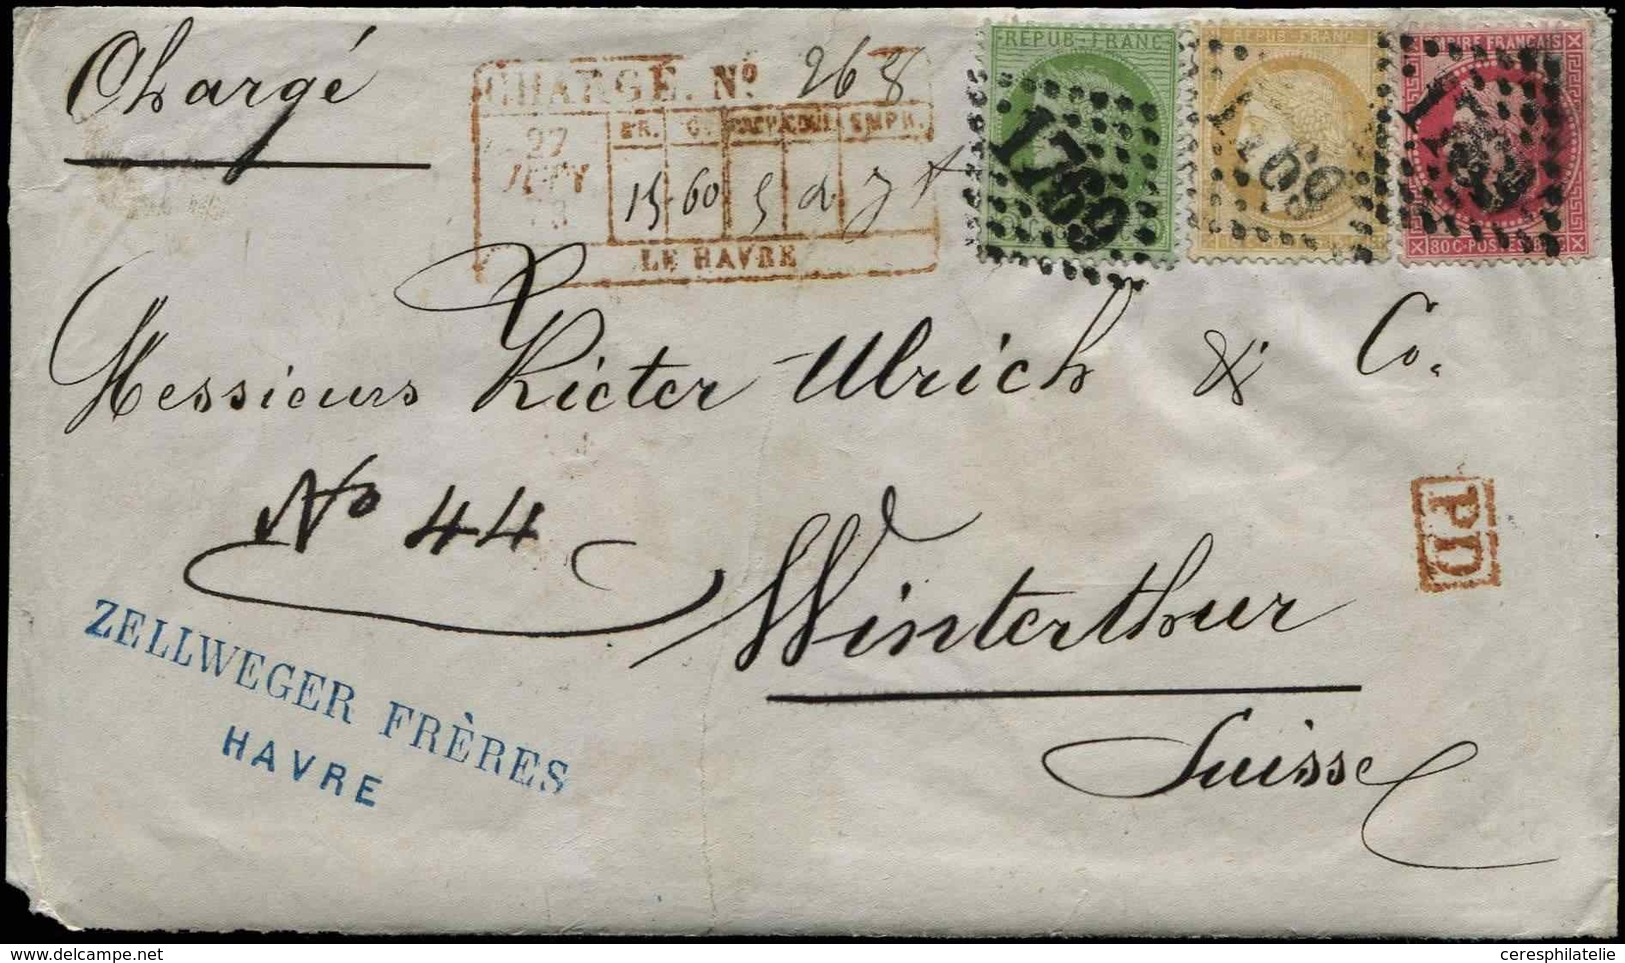 Chargé
CHARGÉ. Nº 268
GR. C.
27
JANV
73
15 60 5 2 7
LE HAVRE
REPUB FRANC
1769
REPUB FRANC
1769
EMPIRE FRANÇAIS
80 C POSTES 80 C
Messieurs Rieter Ulrich & Co.
No 44
PD
Winterthur
Suisse
ZELLWEGER FRÈRES
HAVRE
delcampe.net
ceresphilatelie